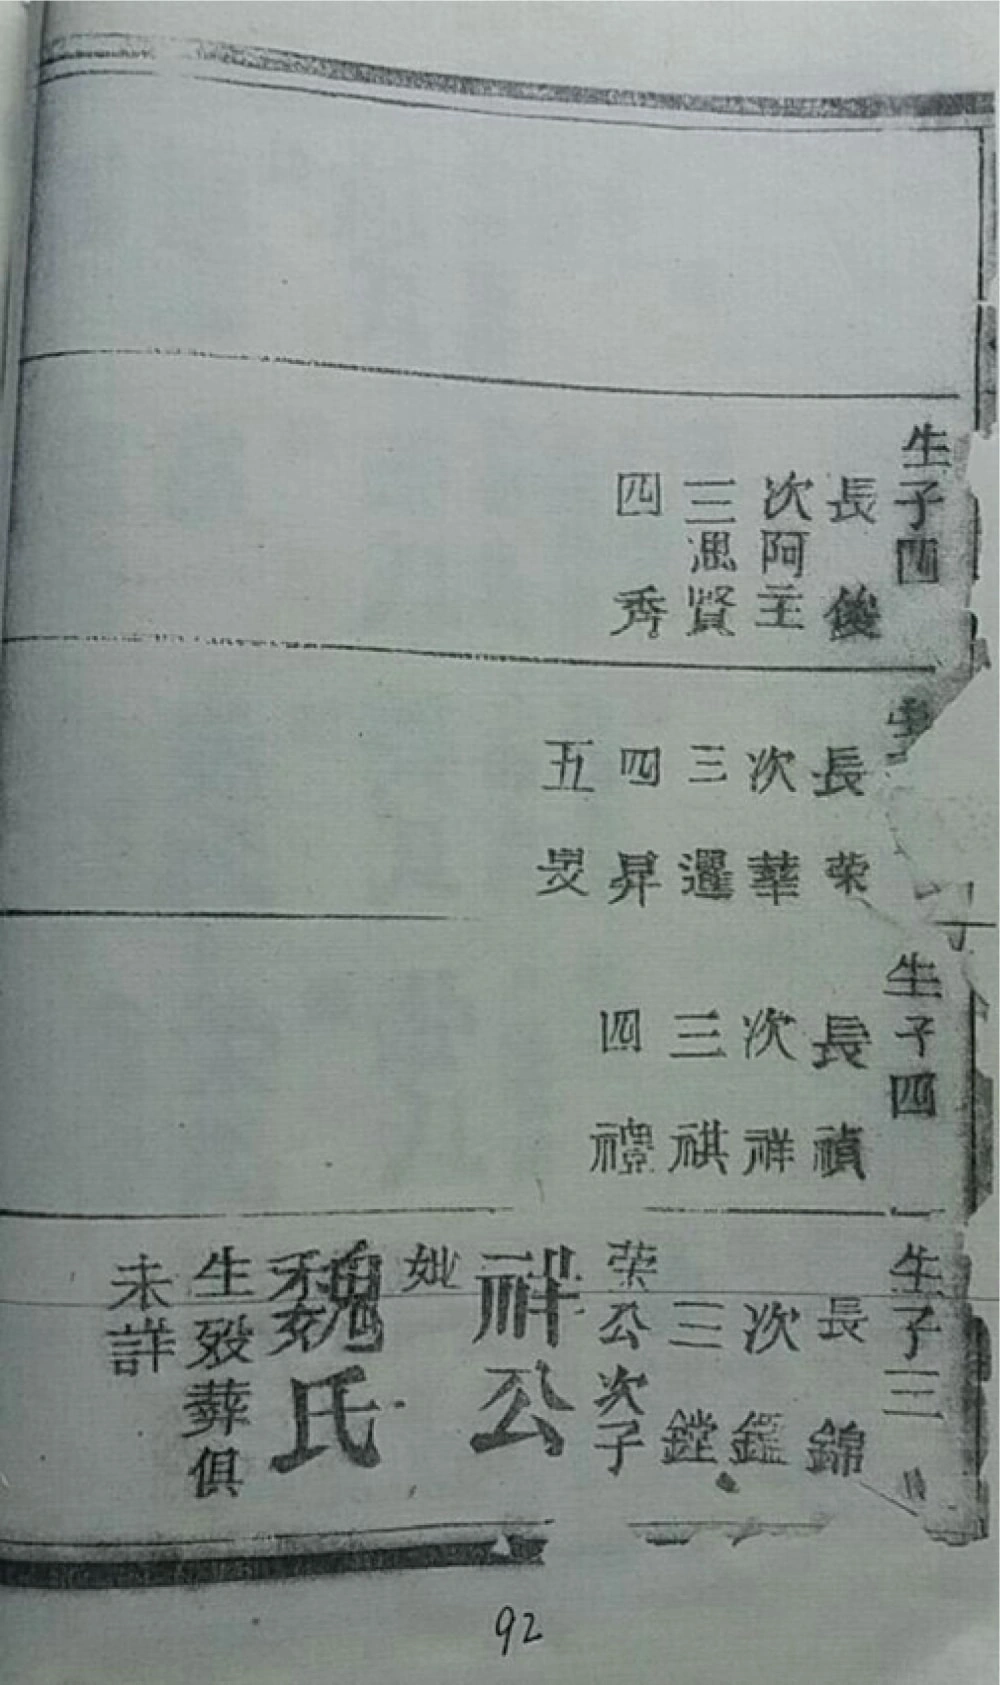 生子四
長 俊
次阿主
三思賢
四 秀
生
長 荣
次 華
三 暹
四 昇
五 炅
生子四
長 禎
次 祥
三 祺
四 禮
生子三
長 錦
次 鑑
三 鏜
荣公次子
祥公
妣
魏氏
生殁葬俱
未詳
92